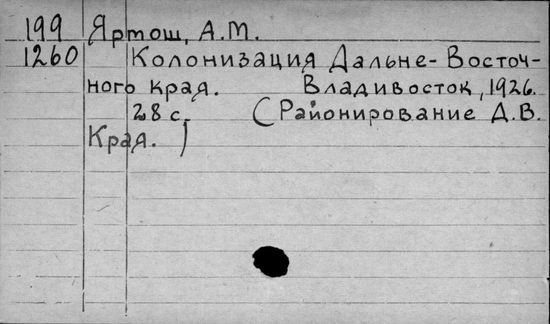 199 Яртош, А.М.
1260 Колонизация Дальне-Восточ-
ного края. Владивосток, 1926.
28 с. (Районирование Д.В.
Края.)